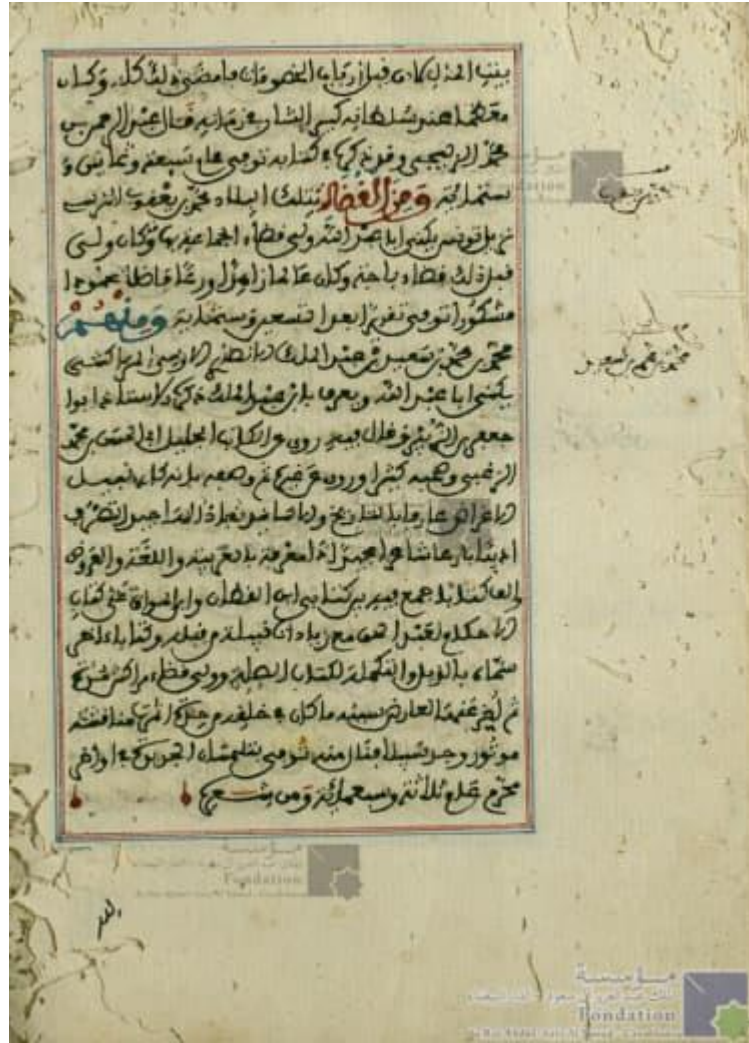 بيت المال كان قبل أرباب الخصومات فأمضى ذلك كله وكان
معظما عند سلطانه كبير الشأن في زمانه قال عبد الرحمن بن
محمد وقد ذكره في كتابه توفي عام تسعة وثمانين و
ستمائة ومن القضاة بتلك البلاد محمد بن يعقوب المرسي
نزيل تونس يكنى أبا عبد الله ولي قضاء الجماعة بها وكان ولي
قبل ذلك قضاء باجة وكان عالما زاهدا ورعا فاضلا محمودا
مشكورا توفي تقريبا بعد التسعين وستمائة ومنهم
محمد بن محمد بن سعيد بن عبد الملك الانصاري الاوسي المراكشي
يكنى أبا عبد الله ويعرف بابن عبد الملك ذكره الاستاذ ابو
جعفر بن الزبير وقال فيه روى عن الكاتب الجليل أبي الحسن بن محمد
الرعيني وصحبه كثيرا وروى عن غيره ثم وصفه بانه كان نبيل
الاغراض عارفا بالتاريخ والاسانيد نقادا لها جيد التصرف
اديبا بارعا شاعرا مجيدا ذا معرفة بالعربية واللغة والعروض
والف كتابا جمع فيه بين كتابي ابن القطان وابن المواق على كتاب
الاحكام لعبد الحق مع زيادات نبيلة من قبله وكتابا اخر
سماه بالذيل والتكملة لكتاب الصلة وولي قضاء مراكش مدة
ثم أخر عنها لعارض سببه ما كان في خلقه من حدة اثمرها مناقشة
موتور وجد سبيلا فنال منه توفي بتلمسان الجديدة في اواخر
محرم عام ثلاثة وسبعمائة ومن شعره
محمد بن محمد بن سعيد
مؤسسة
Fondation